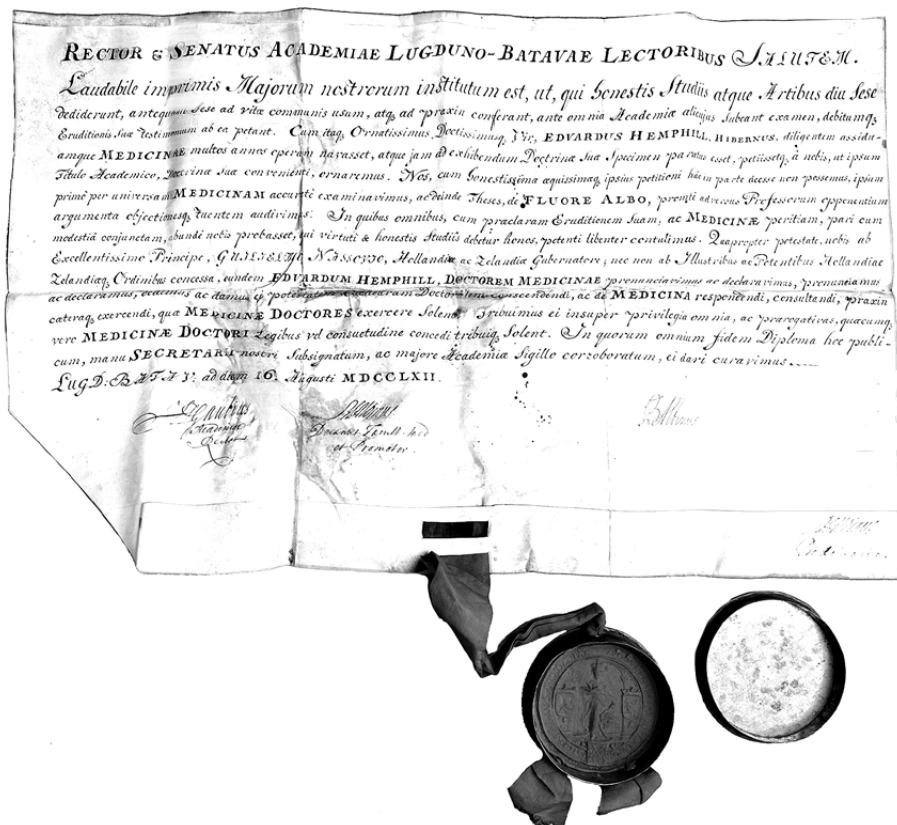 RECTOR & SENATUS ACADEMIAE LUGDUNO-BATAVAE LECTORIBUS SALUTEM.
Laudabile imprimis Majorum nostrorum institutum est, ut, qui honestis Studiis atque Artibus diu sese
dediderunt, antequam sese ad vitæ communis usum, atq; ad praxin conferant, ante omnia Academiæ alicujus subeant examen, debitumq;
Eruditionis suæ Testimonium ab ea petant. Cum itaq; Ornatissimus, Doctissimusq; Vir, EDVARDUS HEMPHILL, HIBERNUS, diligentem assidu-
amque MEDICINÆ multos annos operam navasset, atque jam ad exhibendum Doctrinæ suæ Specimen paratus esset, petiissetq; à nobis, ut ipsum
Titulo Academico, Doctrinæ suæ convenienti, ornaremus. Nos, cum honestissimæ æquissimæq; ipsius petitioni hac in parte deesse non possemus, ipsum
primò per universam MEDICINAM accuratè examinavimus, ac deinde Theses, de FLUORE ALBO, promti adversus Professorum opponentium
argumenta objectionesq; tuentem audivimus. In quibus omnibus, cum praeclaram Eruditionem suam, ac MEDICINÆ peritiam, pari cum
modestiâ conjunctam, abundè nobis probasset, qui virtuti & honestis Studiis debetur honos, petenti libenter contulimus. Quapropter potestate, nobis ab
Excellentissimo Principe, GUILIELMO NASSOVIO, Hollandiæ ac Zelandiæ Gubernatore, nec non ab Illustribus ac Potentibus Hollandiae
Zelandiæq; Ordinibus concessa, eundem EDVARDUM HEMPHILL, DOCTOREM MEDICINAE pronunciavimus ac declaravimus, pronunciamus
ac declaramus, cedimus ac damus ei potestatem Cathedram Doctoralem conscendendi, ac de MEDICINA respondendi, consultandi, praxin
cæteraq; exercendi, quæ MEDICINÆ DOCTORES exercere Solent, Tribuimus ei insuper privilegia omnia, ac prærogativas, quæcumq;
vero MEDICINÆ DOCTORI Legibus vel consuetudine concedi tribuiq; Solent. In quorum omnium fidem Diploma hoc publi-
cum, manu SECRETARII nostri Subsignatum, ac majore Academiæ Sigillo corroboratum, ei dari curavimus.
LUGD: BATAV: ad diem 16. Augusti MDCCLXII.
Gaubius
Academiæ
Rector
BS Albinus
Decanus Facult. Med
et Promotor.
BSAlbinus